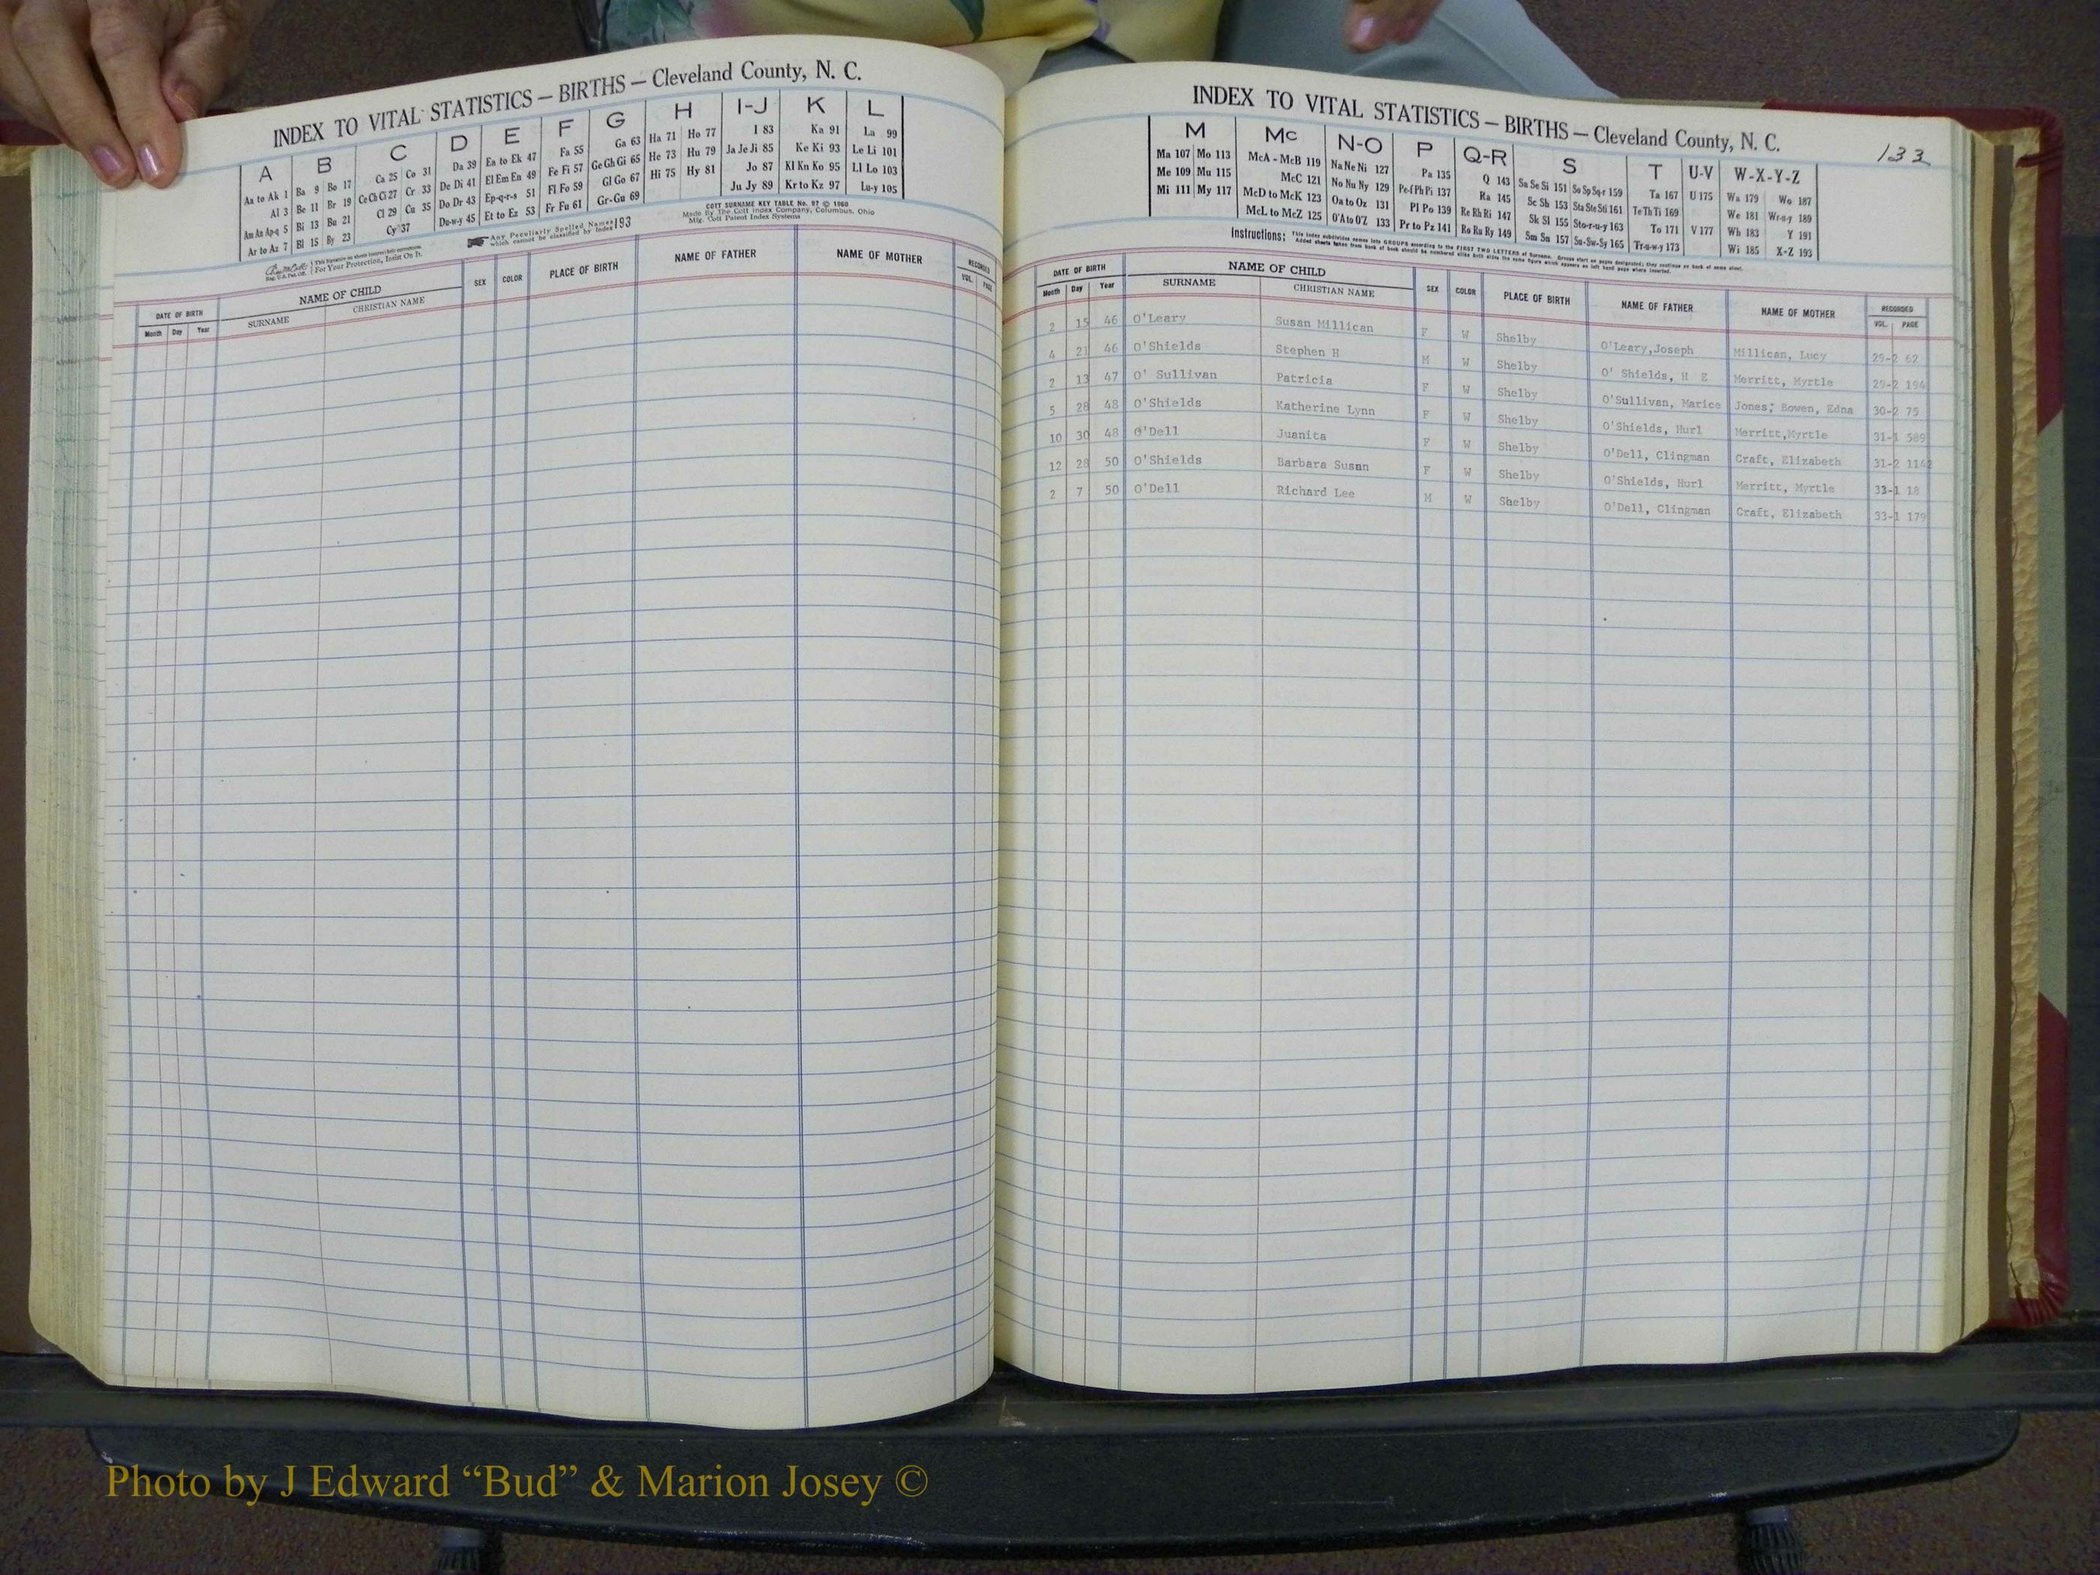 INDEX TO VITAL STATISTICS — BIRTHS — Cleveland County, N. C.
A B C D E F G H I-J K L
Aa to Ak 1 Ba 9 Bo 17 Ca 25 Co 31 Da 39 Ea to Ek 47 Fa 55 Ga 63 Ha 71 Ho 77 I 83 Ka 91 La 99
Al 3 Be 11 Br 19 Ce Ch Ci 27 Cr 33 De Di 41 El Em En 49 Fe Fi 57 Ge Gh Gi 65 He 73 Hu 79 Ja Je Ji 85 Ke Ki 93 Le Li 101
Am An Ap-q 5 Bi 13 Bu 21 Cl 29 Cu 35 Do Dr 43 Ep-q-r-s 51 Fl Fo 59 Gl Go 67 Hi 75 Hy 81 Jo 87 Kl Kn Ko 95 Ll Lo 103
Ar to Az 7 Bl 15 By 23 Cy 37 Du-w-y 45 Et to Ez 53 Fr Fu 61 Gr-Gu 69 Ju Jy 89 Kr to Kz 97 Lu-y 105
For Your Protection, Insist On It.
Any Peculiarly Spelled Names which cannot be classified by Index 193
COTT SURNAME KEY TABLE No. 97 © 1960
Made By The Cott Index Company, Columbus, Ohio
Mfg. Cott Patent Index Systems
DATE OF BIRTH NAME OF CHILD SEX COLOR PLACE OF BIRTH NAME OF FATHER NAME OF MOTHER RECORDED
Month Day Year SURNAME CHRISTIAN NAME VOL. PAGE
133
INDEX TO VITAL STATISTICS — BIRTHS — Cleveland County, N. C.
M Mc N-O P Q-R S T U-V W-X-Y-Z
Ma 107 Mo 113 McA - McB 119 Na Ne Ni 127 Pa 135 Q 143 Sa Se Si 151 So Sp Sq-r 159 Ta 167 U 175 Wa 179 Wo 187
Me 109 Mu 115 McC 121 No Nu Ny 129 Pe-f Ph Pi 137 Ra 145 Sc Sh 153 Sta Ste Sti 161 Te Th Ti 169 We 181 Wr-u-y 189
Mi 111 My 117 McD to McK 123 Oa to Oz 131 Pl Po 139 Re Rh Ri 147 Sk Sl 155 Sto-r-u-y 163 To 171 V 177 Wh 183 Y 191
McL to McZ 125 O'A to O'Z 133 Pr to Pz 141 Ro Ru Ry 149 Sm Sn 157 Su-Sw-Sy 165 Tr-u-w-y 173 Wi 185 X-Z 193
Instructions: This index subdivides names into GROUPS according to the FIRST TWO LETTERS of Surname.
DATE OF BIRTH NAME OF CHILD SEX COLOR PLACE OF BIRTH NAME OF FATHER NAME OF MOTHER RECORDED
Month Day Year SURNAME CHRISTIAN NAME VOL. PAGE
2 15 46 O'Leary Susan Millican F W Shelby O'Leary,Joseph Millican, Lucy 29-2 62
4 21 46 O'Shields Stephen H M W Shelby O' Shields, H E Merritt, Myrtle 29-2 194
2 13 47 O' Sullivan Patricia F W Shelby O'Sullivan, Marice Jones; Bowen, Edna 30-2 75
5 28 48 O'Shields Katherine Lynn F W Shelby O'Shields, Hurl Merritt,Myrtle 31-1 589
10 30 48 O'Dell Juanita F W Shelby O'Dell, Clingman Craft, Elizabeth 31-2 1142
12 28 50 O'Shields Barbara Susan F W Shelby O'Shields, Hurl Merritt, Myrtle 33-1 18
2 7 50 O'Dell Richard Lee M W Shelby O'Dell, Clingman Craft, Elizabeth 33-1 179
Photo by J Edward “Bud” & Marion Josey ©